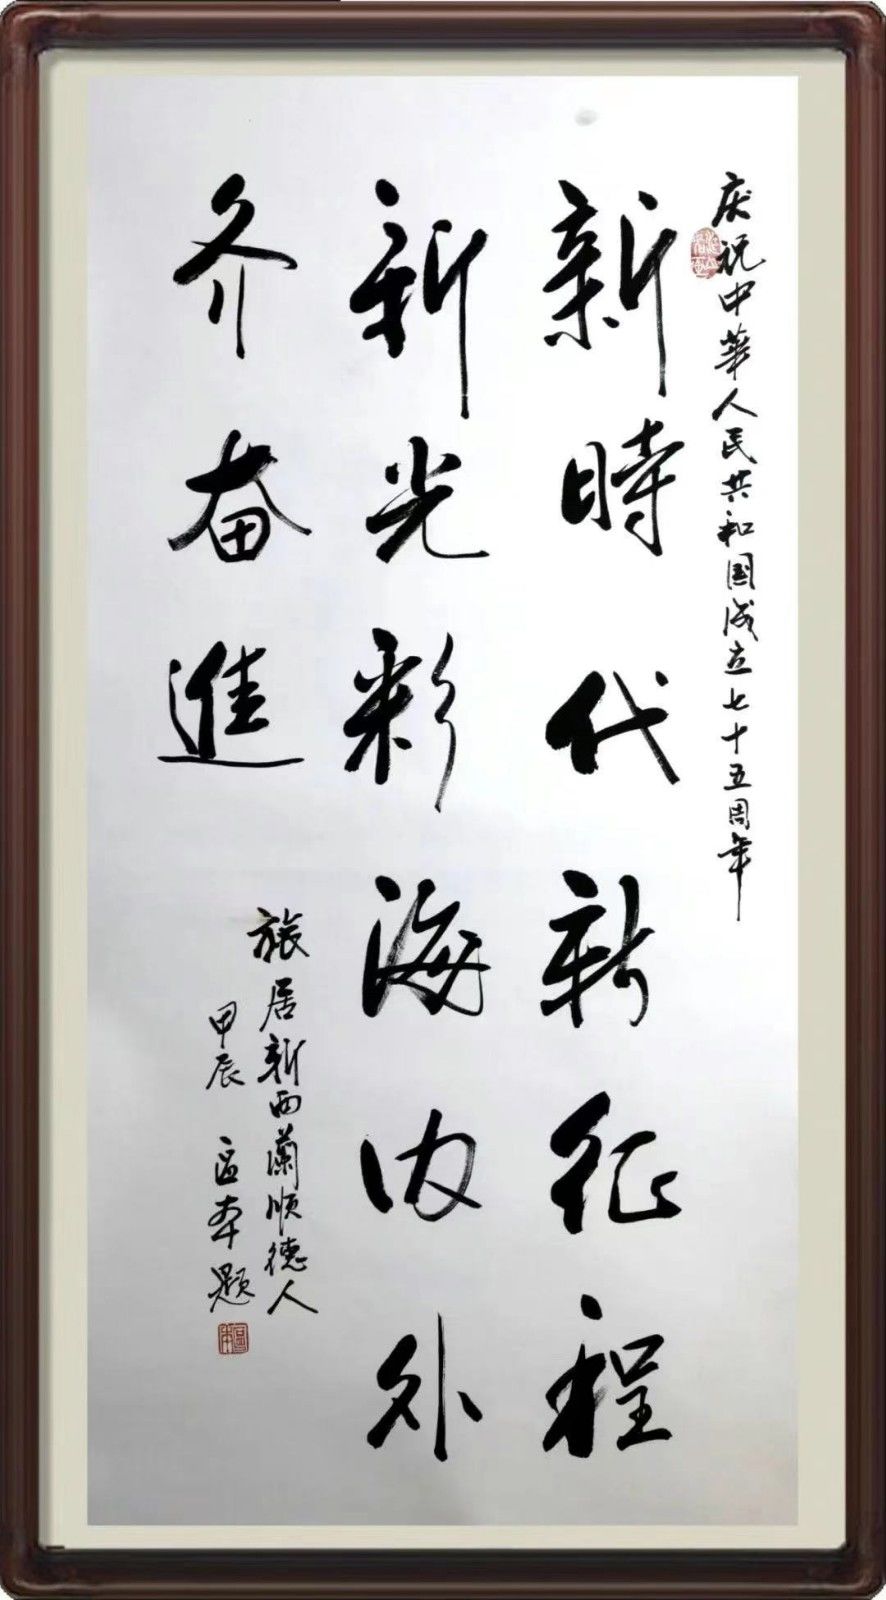 庆祝中華人民共和國成立七十五周年
新時代新征程
新光彩海内外
齐奋進
旅居新西蘭順德人
甲辰 區本題
區本